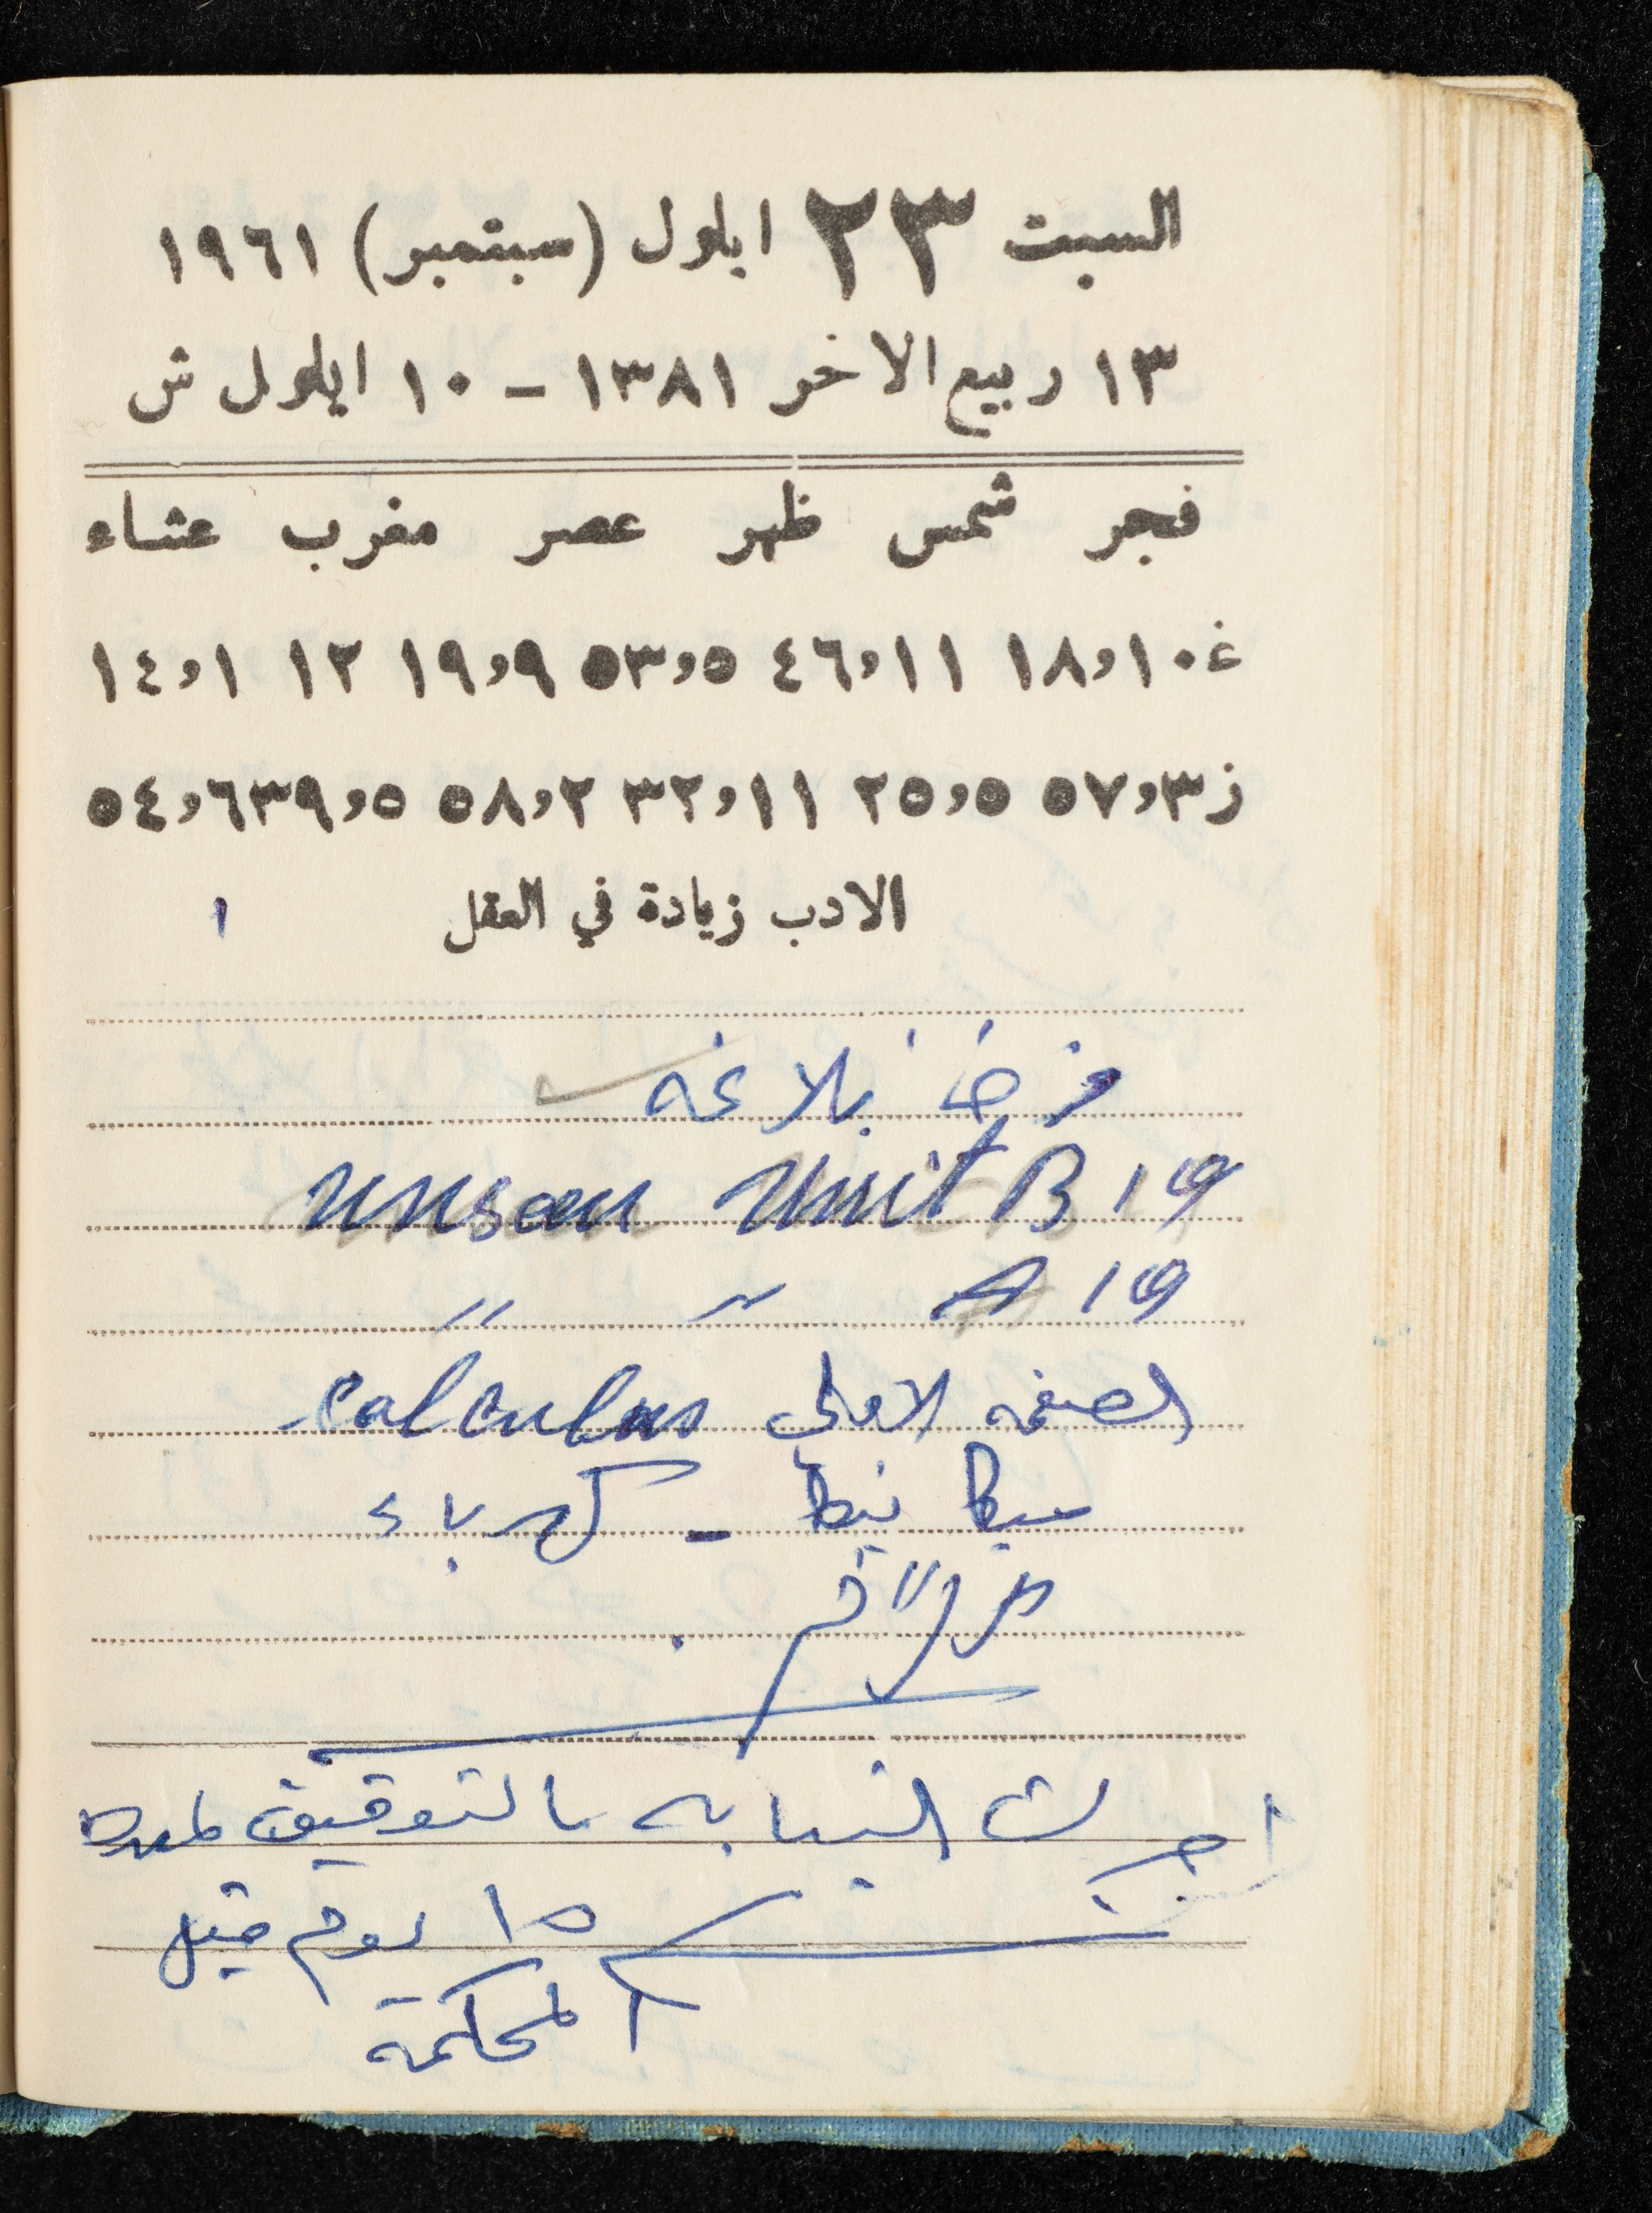 السبت ٢٣ ايلول (سبتمبر) ١٩٦١
١٣ ربيع الاخر ١٣٨١ - ١٠ ايلول ش
فجر شمس ظهر عصر مغرب عشاء
غ ١٠,١٨ ١١,٤٦ ٥,٥٣ ٩,١٩ ١٢ ١,١٤
ز ٣,٥٧ ٥,٢٥ ١١,٣٢ ٢,٥٨ ٥,٣٩ ٦,٥٤
الادب زيادة في العقل
١
فرض بلاغه
Unit B 19
" " A 19
الصفحه الاولى calculus
ميكانيكا - كهرباء
امرت النيابه بالتوقيف لمدة
١٥ يوم قبل
المحكمة